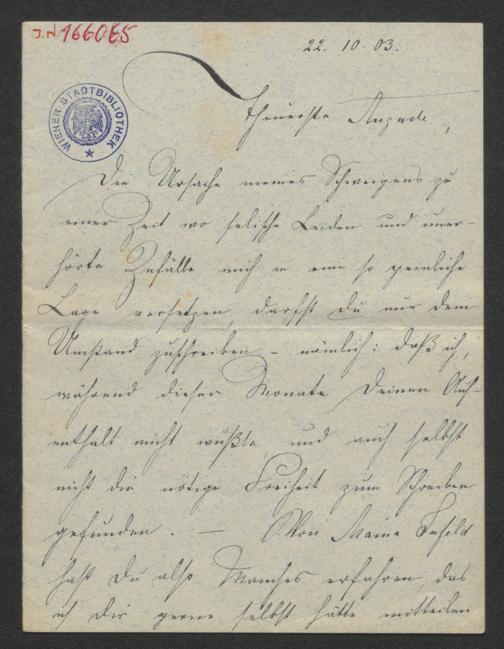 J.N 166065
WIENER STADTBIBLIOTHEK
22. 10. 03.
Theuerste
Die Ursache meines Schweigens zu
einer Zeit wo seelische Leiden und uner-
hörte Zufälle mich in eine so peinliche
Lage versetzen, darfst Du nur dem
Umstand zuschreiben – nämlich: daß ich,
während dieser Monate Deinen Auf-
enthalt nicht wußte, und auch selbst
nicht die nötige Freiheit zum Schreiben
gefunden. — Von
hast Du also Manches erfahren, das
ich Dir gerne selbst hätte mitteilen